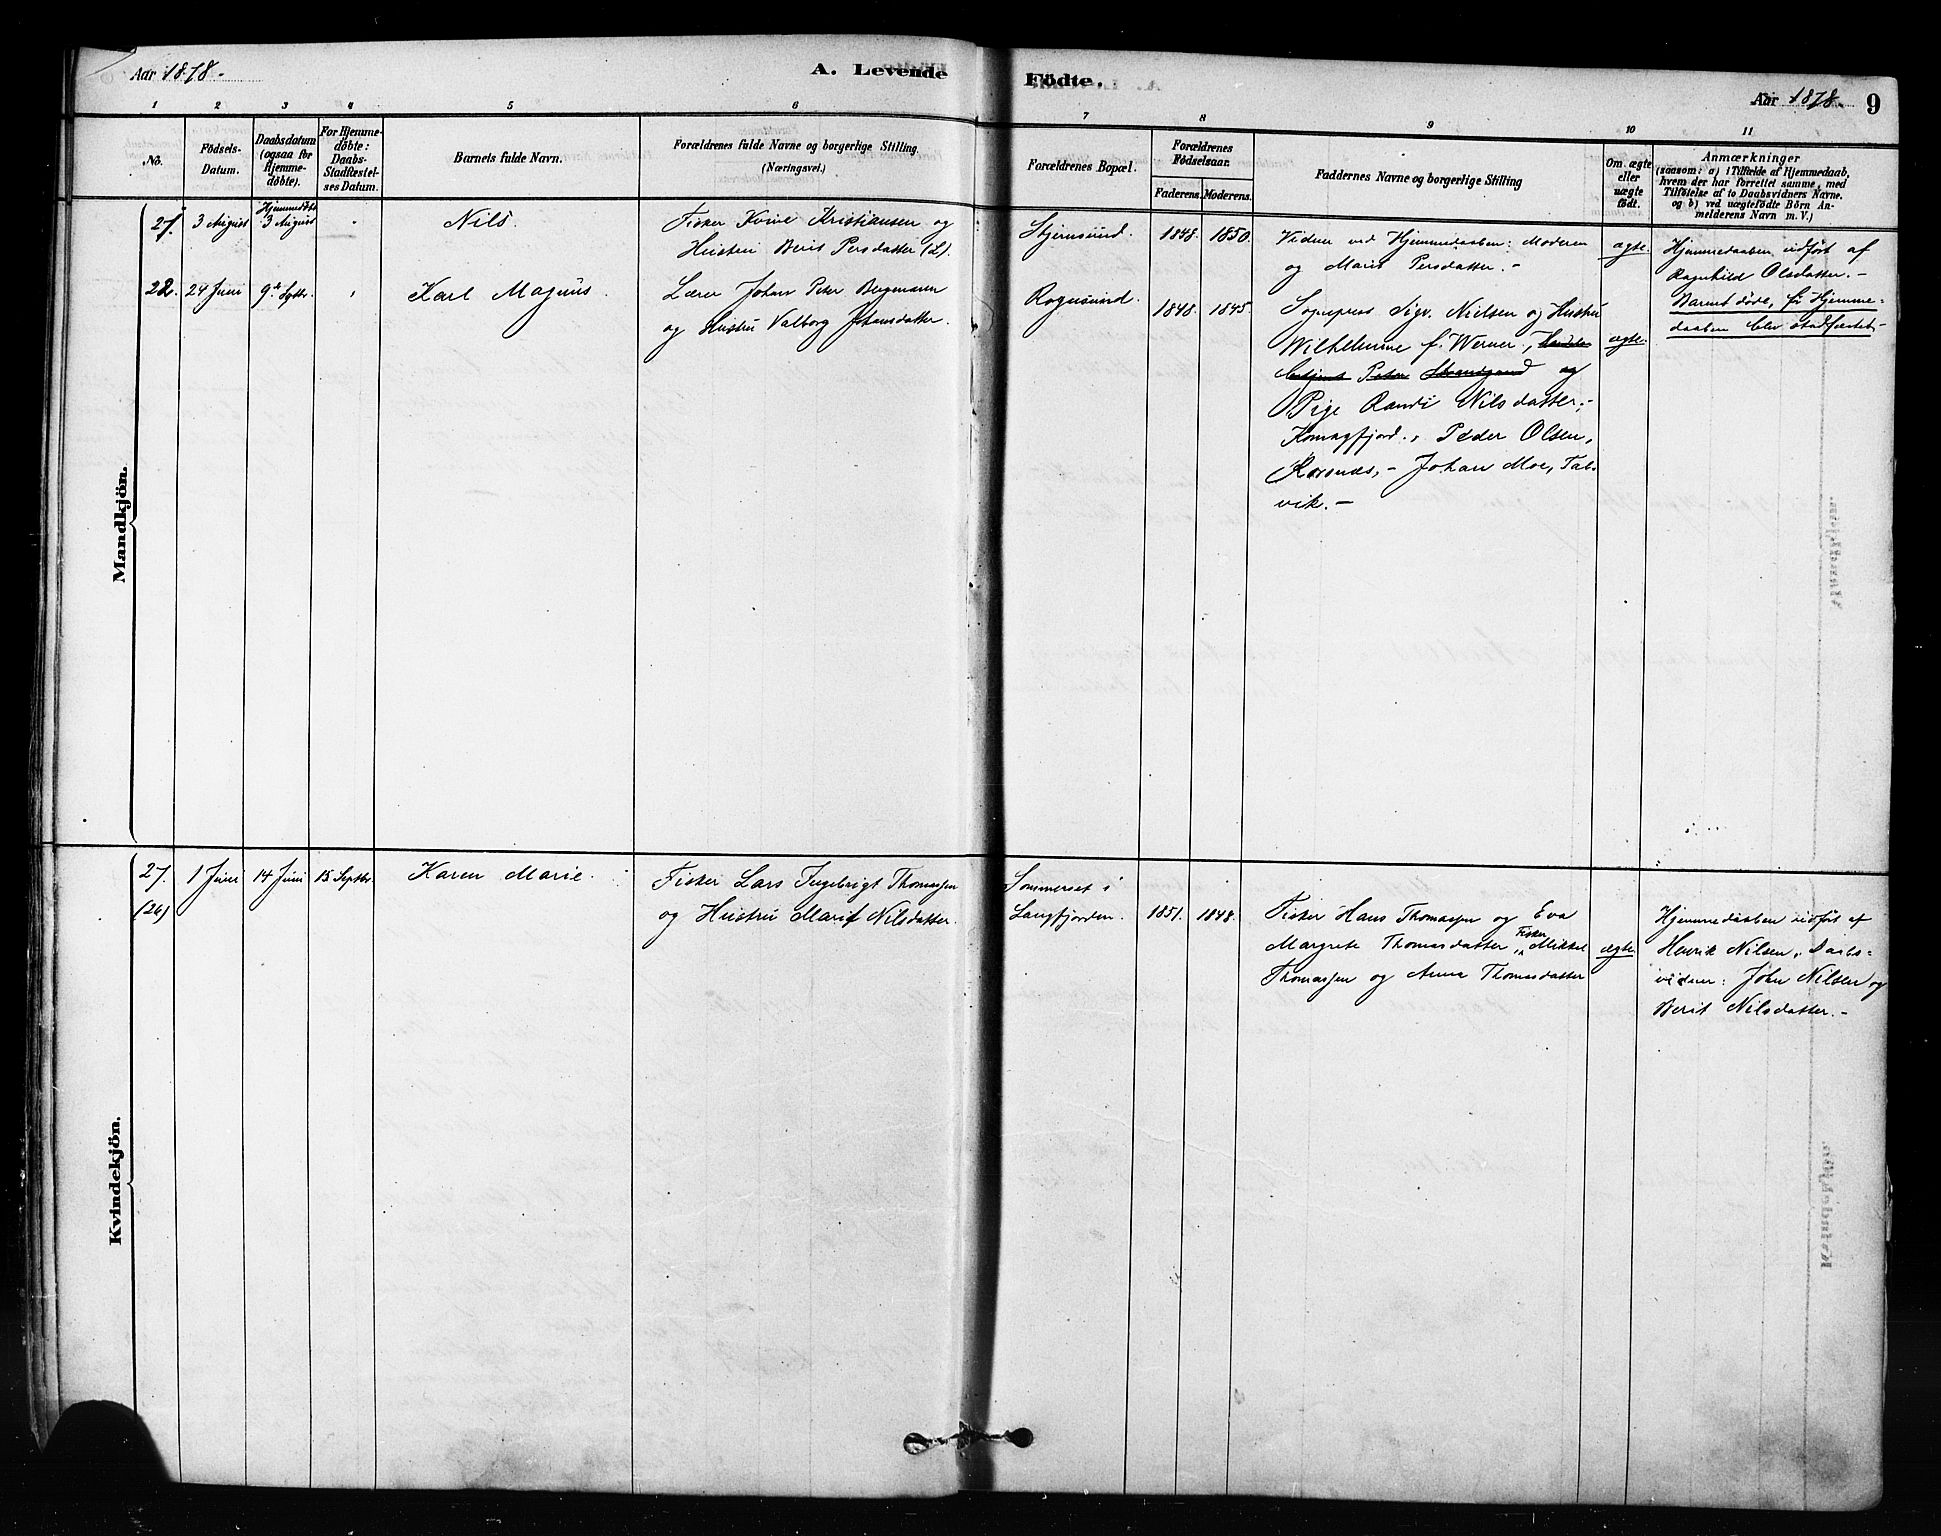 Aar 1878.
A. Levende
Födte.
Aar 1878.
9
1 2 3 4 5 6 7 8 9 10 11
No.
Födsels-
Datum.
Daabsdatum
(ogsaa for
Hjemme-
döbte).
For Hjemme-
döbte:
Daabs-
Stadfæstel-
ses Datum.
Barnets fulde Navn.
Forældrenes fulde Navne og borgerlige Stilling.
(Næringsvei.)
Forældrenes Bopæl.
Forældrenes
Födselsaar.
Faderens. Moderens.
Faddernes Navne og borgerlige Stilling
Om ægte
eller
uægte
födt.
Anmærkninger
(saasom: a) i Tilfælde af Hjemmedaab,
hvem der har forrettet samme, med
Tilföielse af to Daabsvidners Navne.
og b) ved uægtefödte Börn An-
melderens Navn m. V.)
Mandkjön.
27. 3 August Hjemmedöbt
3 August
Nils.
Fisker Kristiansen og
Hustru Berit Persdatter (L).
Stjernsund.
1848. 1850.
Vidner ved Hjemmedaaben: Moderen
og Marit Persdatter. -
ægte.
Hjemmedaaben udfört af
Ragnhild Olsdatter. -
Barnet döde, för Hjemme-
daaben blev stadfæstet. -
22. 24 Juni 9de Septbr.
Karl Magnus.
Lærer Johan Peter Bergmann
og Hustru Valborg Johansdatter.
Rognsund.
1848. 1845.
Sognepres Sigv. Nielsen og Hustru
Wilhelmine f. Werner.,
Peter Strandgaard og
Pige Randi Nilsdatter; -
Komagfjord., Peder Olsen,
Korsnæs, - Johan Moe, Tal-
vik. -
ægte.
Kvindekjön.
27.
(26)
1 Juni 14 Juni 15 Septbr.
Karen Marie.
Fisker Lars Ingebrigt Thomassen
og Hustru Marit Nilsdatter.
Sommerset i
Langfjorden.
1851. 1848.
Fisker Hans Thomassen og Eva
Margrete Thomasdatter, Fisker Mikkel
Thomassen og Anna Thomasdatter
ægte.
Hjemmedaaben udfört af
Henrik Nilsen, Daabs-
vidner: John Nilsen og
Berit Nilsdatter. -